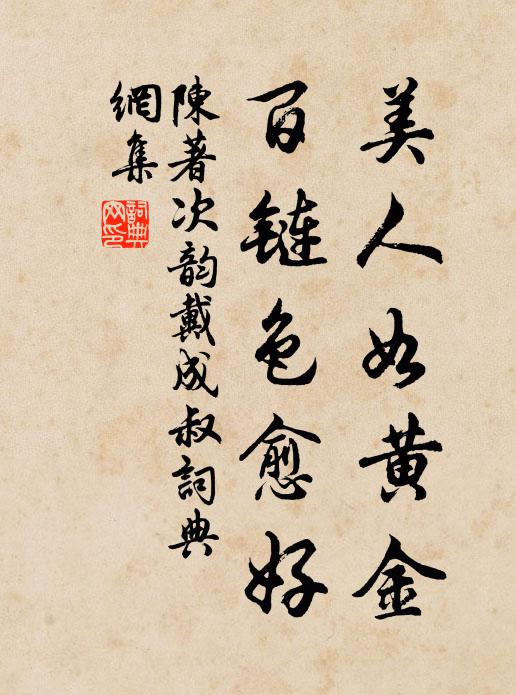 美人如黄金
百鏈色愈好
陳著次韵戴成叔詞典
網集
詞典
文印